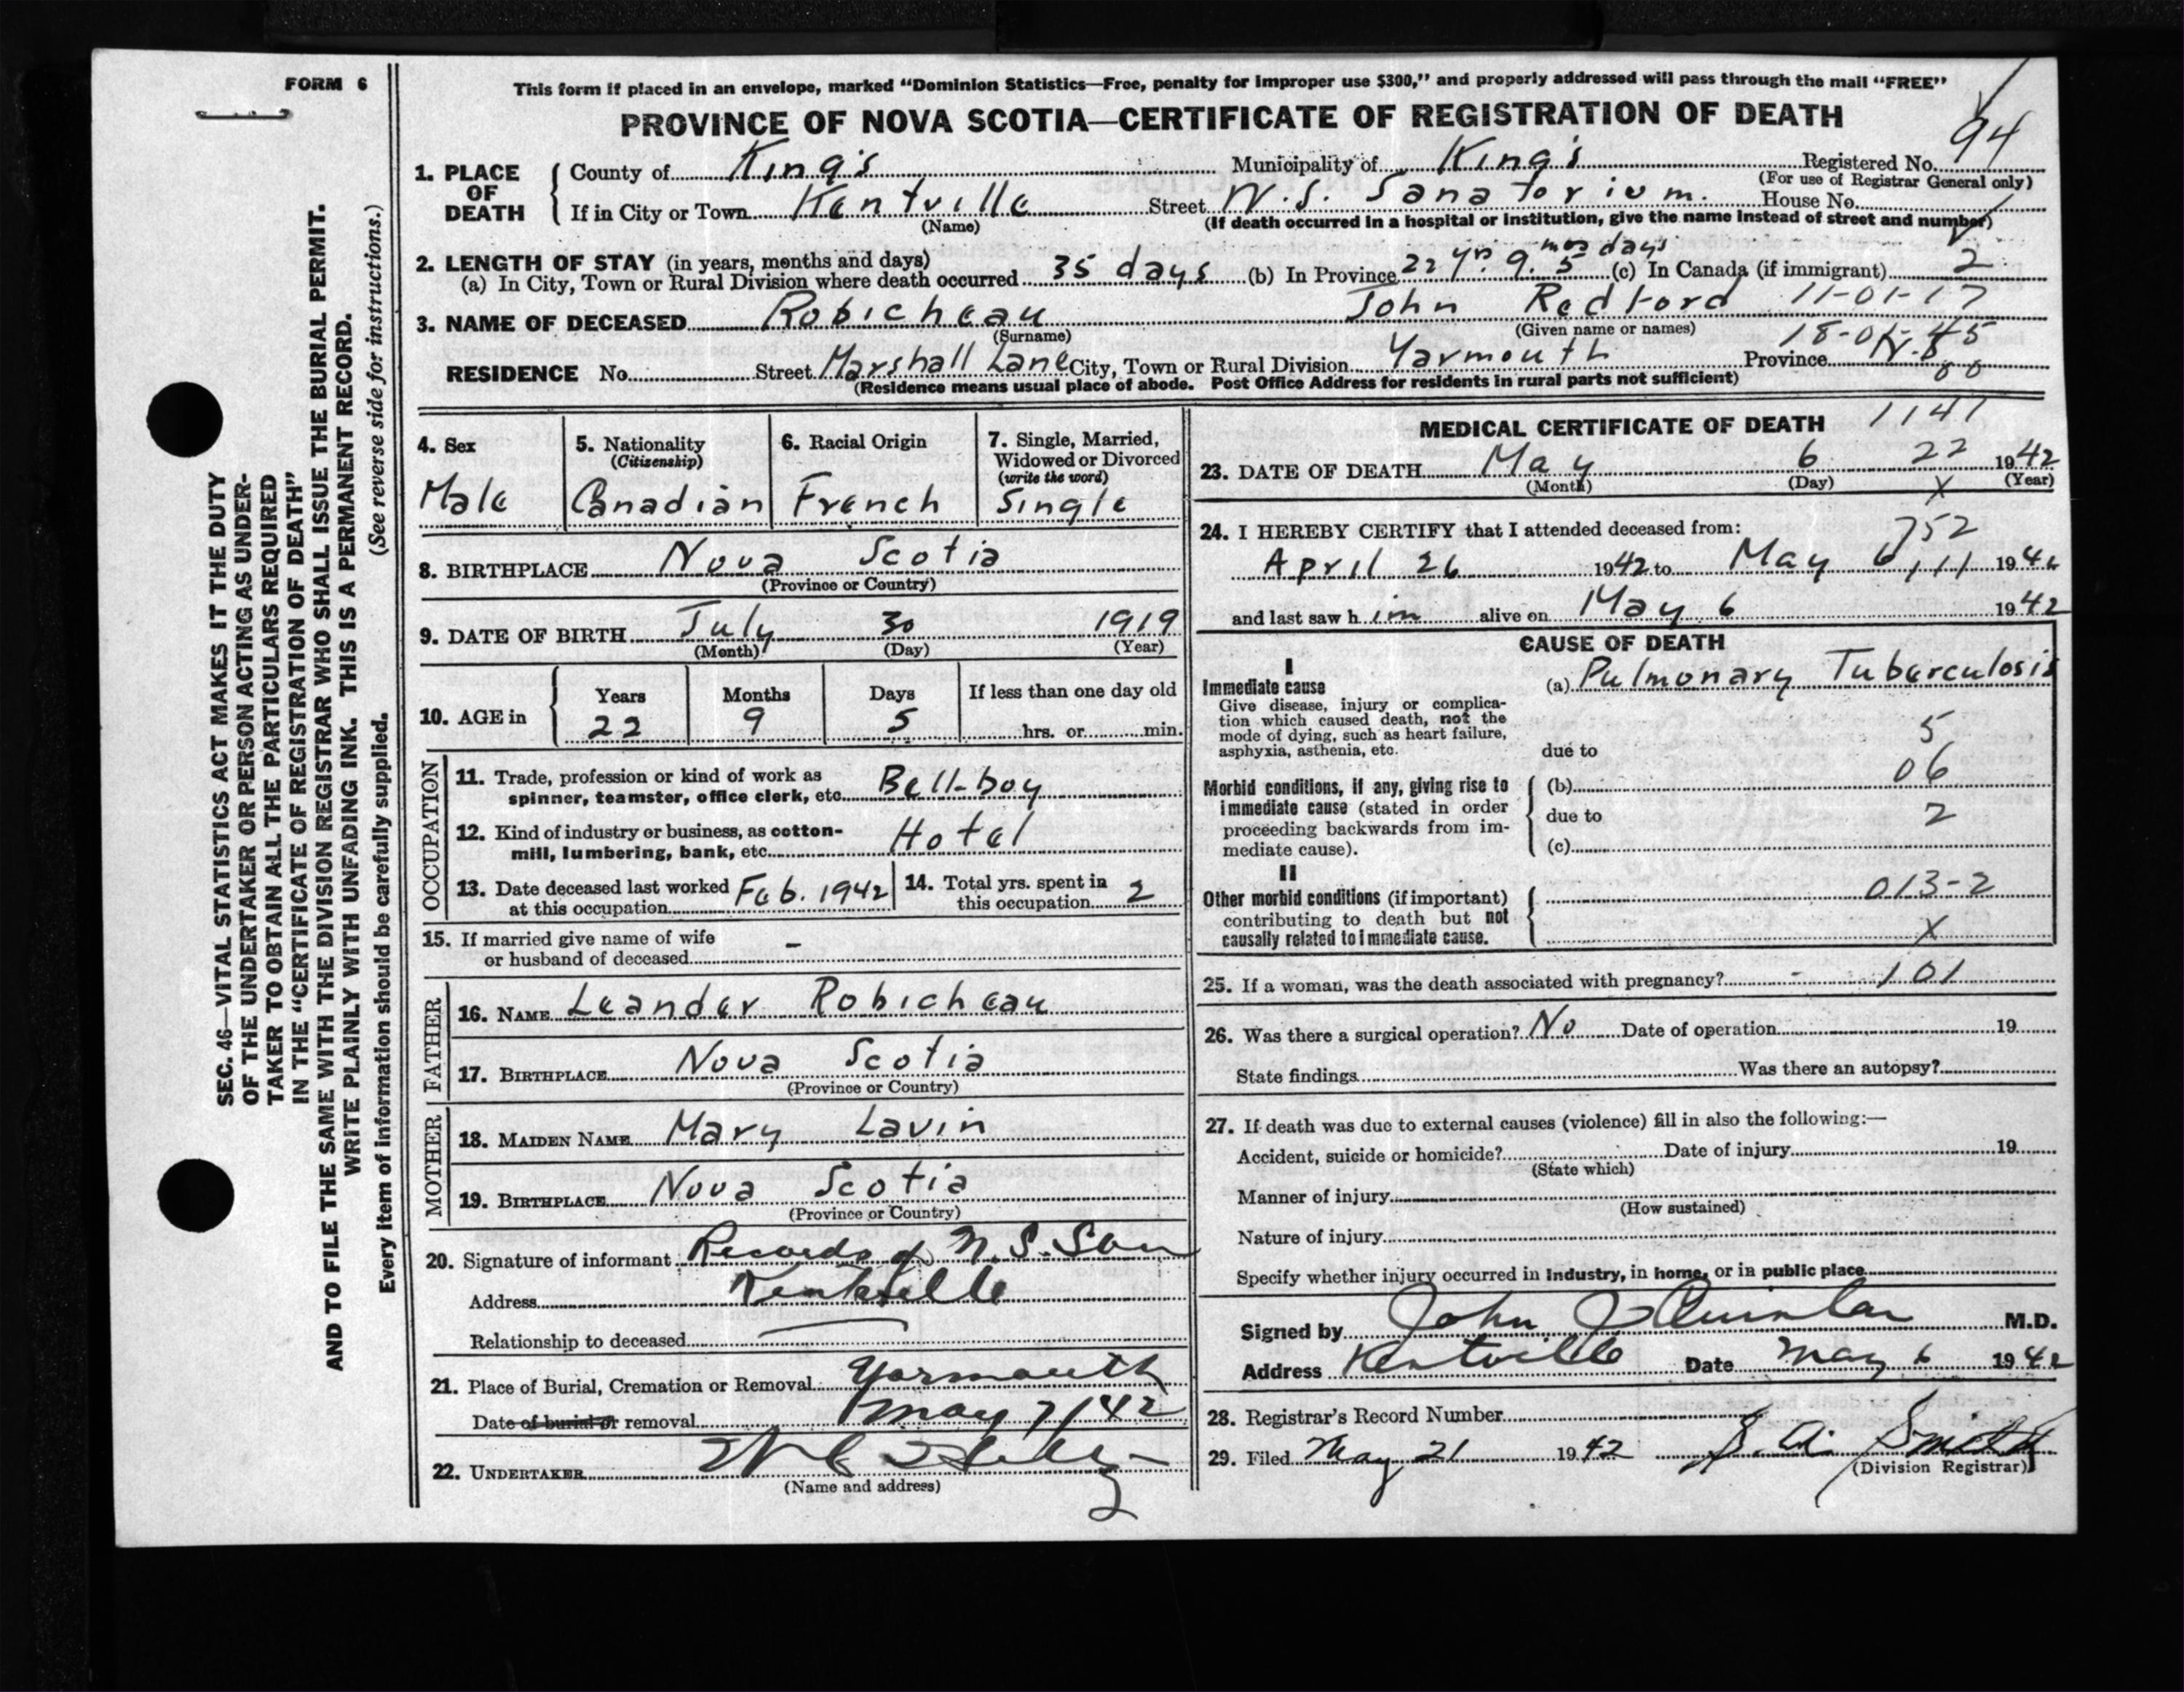 FORM 6
This form if placed in an envelope, marked "Dominion Statistics—Free, penalty for improper use $300," and properly addressed will pass through the mail "FREE"
PROVINCE OF NOVA SCOTIA—CERTIFICATE OF REGISTRATION OF DEATH
94
1. PLACE OF DEATH { County of King's Municipality of King's Registered No.
(For use of Registrar General only)
If in City or Town Kentville Street N.S. Sanatorium. House No.
(Name) (If death occurred in a hospital or institution, give the name instead of street and number)
2. LENGTH OF STAY (in years, months and days)
(a) In City, Town or Rural Division where death occurred 35 days (b) In Province 22 yrs. 9 mos 5 days (c) In Canada (if immigrant) 2
3. NAME OF DECEASED Robicheau John Redford 11-01-17
(Surname) (Given name or names) 18-01-45
RESIDENCE No. Street Marshall Lane City, Town or Rural Division Yarmouth Province N.S.
(Residence means usual place of abode. Post Office Address for residents in rural parts not sufficient)
SEC. 46—VITAL STATISTICS ACT MAKES IT THE DUTY
OF THE UNDERTAKER OR PERSON ACTING AS UNDER-
TAKER TO OBTAIN ALL THE PARTICULARS REQUIRED
IN THE "CERTIFICATE OF REGISTRATION OF DEATH"
AND TO FILE THE SAME WITH THE DIVISION REGISTRAR WHO SHALL ISSUE THE BURIAL PERMIT.
WRITE PLAINLY WITH UNFADING INK. THIS IS A PERMANENT RECORD.
(See reverse side for instructions.)
Every item of information should be carefully supplied.
4. Sex
Male
5. Nationality
(Citizenship)
Canadian
6. Racial Origin
French
7. Single, Married,
Widowed or Divorced
(write the word)
Single
8. BIRTHPLACE Nova Scotia
(Province or Country)
9. DATE OF BIRTH July 30 1919
(Month) (Day) (Year)
10. AGE in { Years Months Days If less than one day old
22 9 5 hrs. or min.
OCCUPATION
11. Trade, profession or kind of work as
spinner, teamster, office clerk, etc. Bell-boy
12. Kind of industry or business, as cotton-
mill, lumbering, bank, etc. Hotel
13. Date deceased last worked
at this occupation Feb. 1942
14. Total yrs. spent in
this occupation 2
15. If married give name of wife
or husband of deceased –
FATHER
16. NAME Leander Robicheau
17. BIRTHPLACE Nova Scotia
(Province or Country)
MOTHER
18. MAIDEN NAME Mary Lavin
19. BIRTHPLACE Nova Scotia
(Province or Country)
20. Signature of informant Records of N.S. San
Address Kentville
Relationship to deceased
21. Place of Burial, Cremation or Removal Yarmouth
Date of burial or removal May 7/42
22. UNDERTAKER
(Name and address)
MEDICAL CERTIFICATE OF DEATH 1141
23. DATE OF DEATH May 6 22 1942
(Month) (Day) X (Year)
24. I HEREBY CERTIFY that I attended deceased from: 752
April 26 1942 to May 6, 11 1942
and last saw him alive on May 6 1942
CAUSE OF DEATH
I
Immediate cause
Give disease, injury or complica-
tion which caused death, not the
mode of dying, such as heart failure,
asphyxia, asthenia, etc.
(a) Pulmonary Tuberculosis
5
due to
06
Morbid conditions, if any, giving rise to
immediate cause (stated in order
proceeding backwards from im-
mediate cause).
(b)
due to 2
(c)
II
Other morbid conditions (if important)
contributing to death but not
causally related to immediate cause.
013-2
X
25. If a woman, was the death associated with pregnancy? - 101
26. Was there a surgical operation? No Date of operation 19
State findings Was there an autopsy?
27. If death was due to external causes (violence) fill in also the following:—
Accident, suicide or homicide? Date of injury 19
(State which)
Manner of injury
(How sustained)
Nature of injury
Specify whether injury occurred in industry, in home, or in public place
Signed by John J Quinlan M.D.
Address Kentville Date May 6 1942
28. Registrar's Record Number
29. Filed May 21 1942 Smith
(Division Registrar)